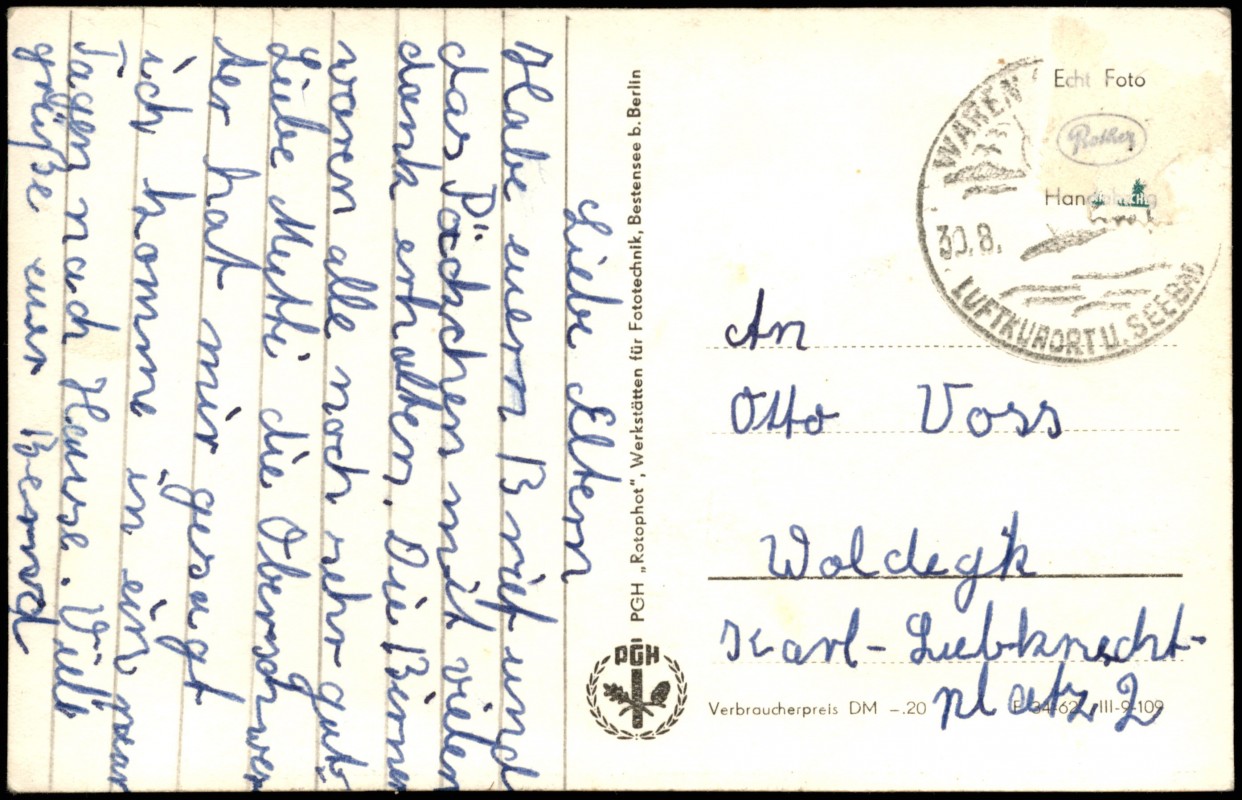 Liebe Eltern
Habe euern Brief und
das Päckchen mit vielen
dank erhalten. Die Birnen
waren alle noch sehr gut.
Liebe Mutti die Oberschwes
ter hat mir gesagt
ich komme in ein paar
Tagen nach Hause. Viele
grüße euer Bernd
PGH „Rotophot", Werkstätten für Fototechnik, Bestensee b. Berlin
PGH
WAREN
30.8.
LUFTKURORT U. SEEBAD
Echt Foto
Rother
An
Otto Voss
Woldegk
Karl-Liebknecht-
platz 2
Verbraucherpreis DM –.20
III-9-109